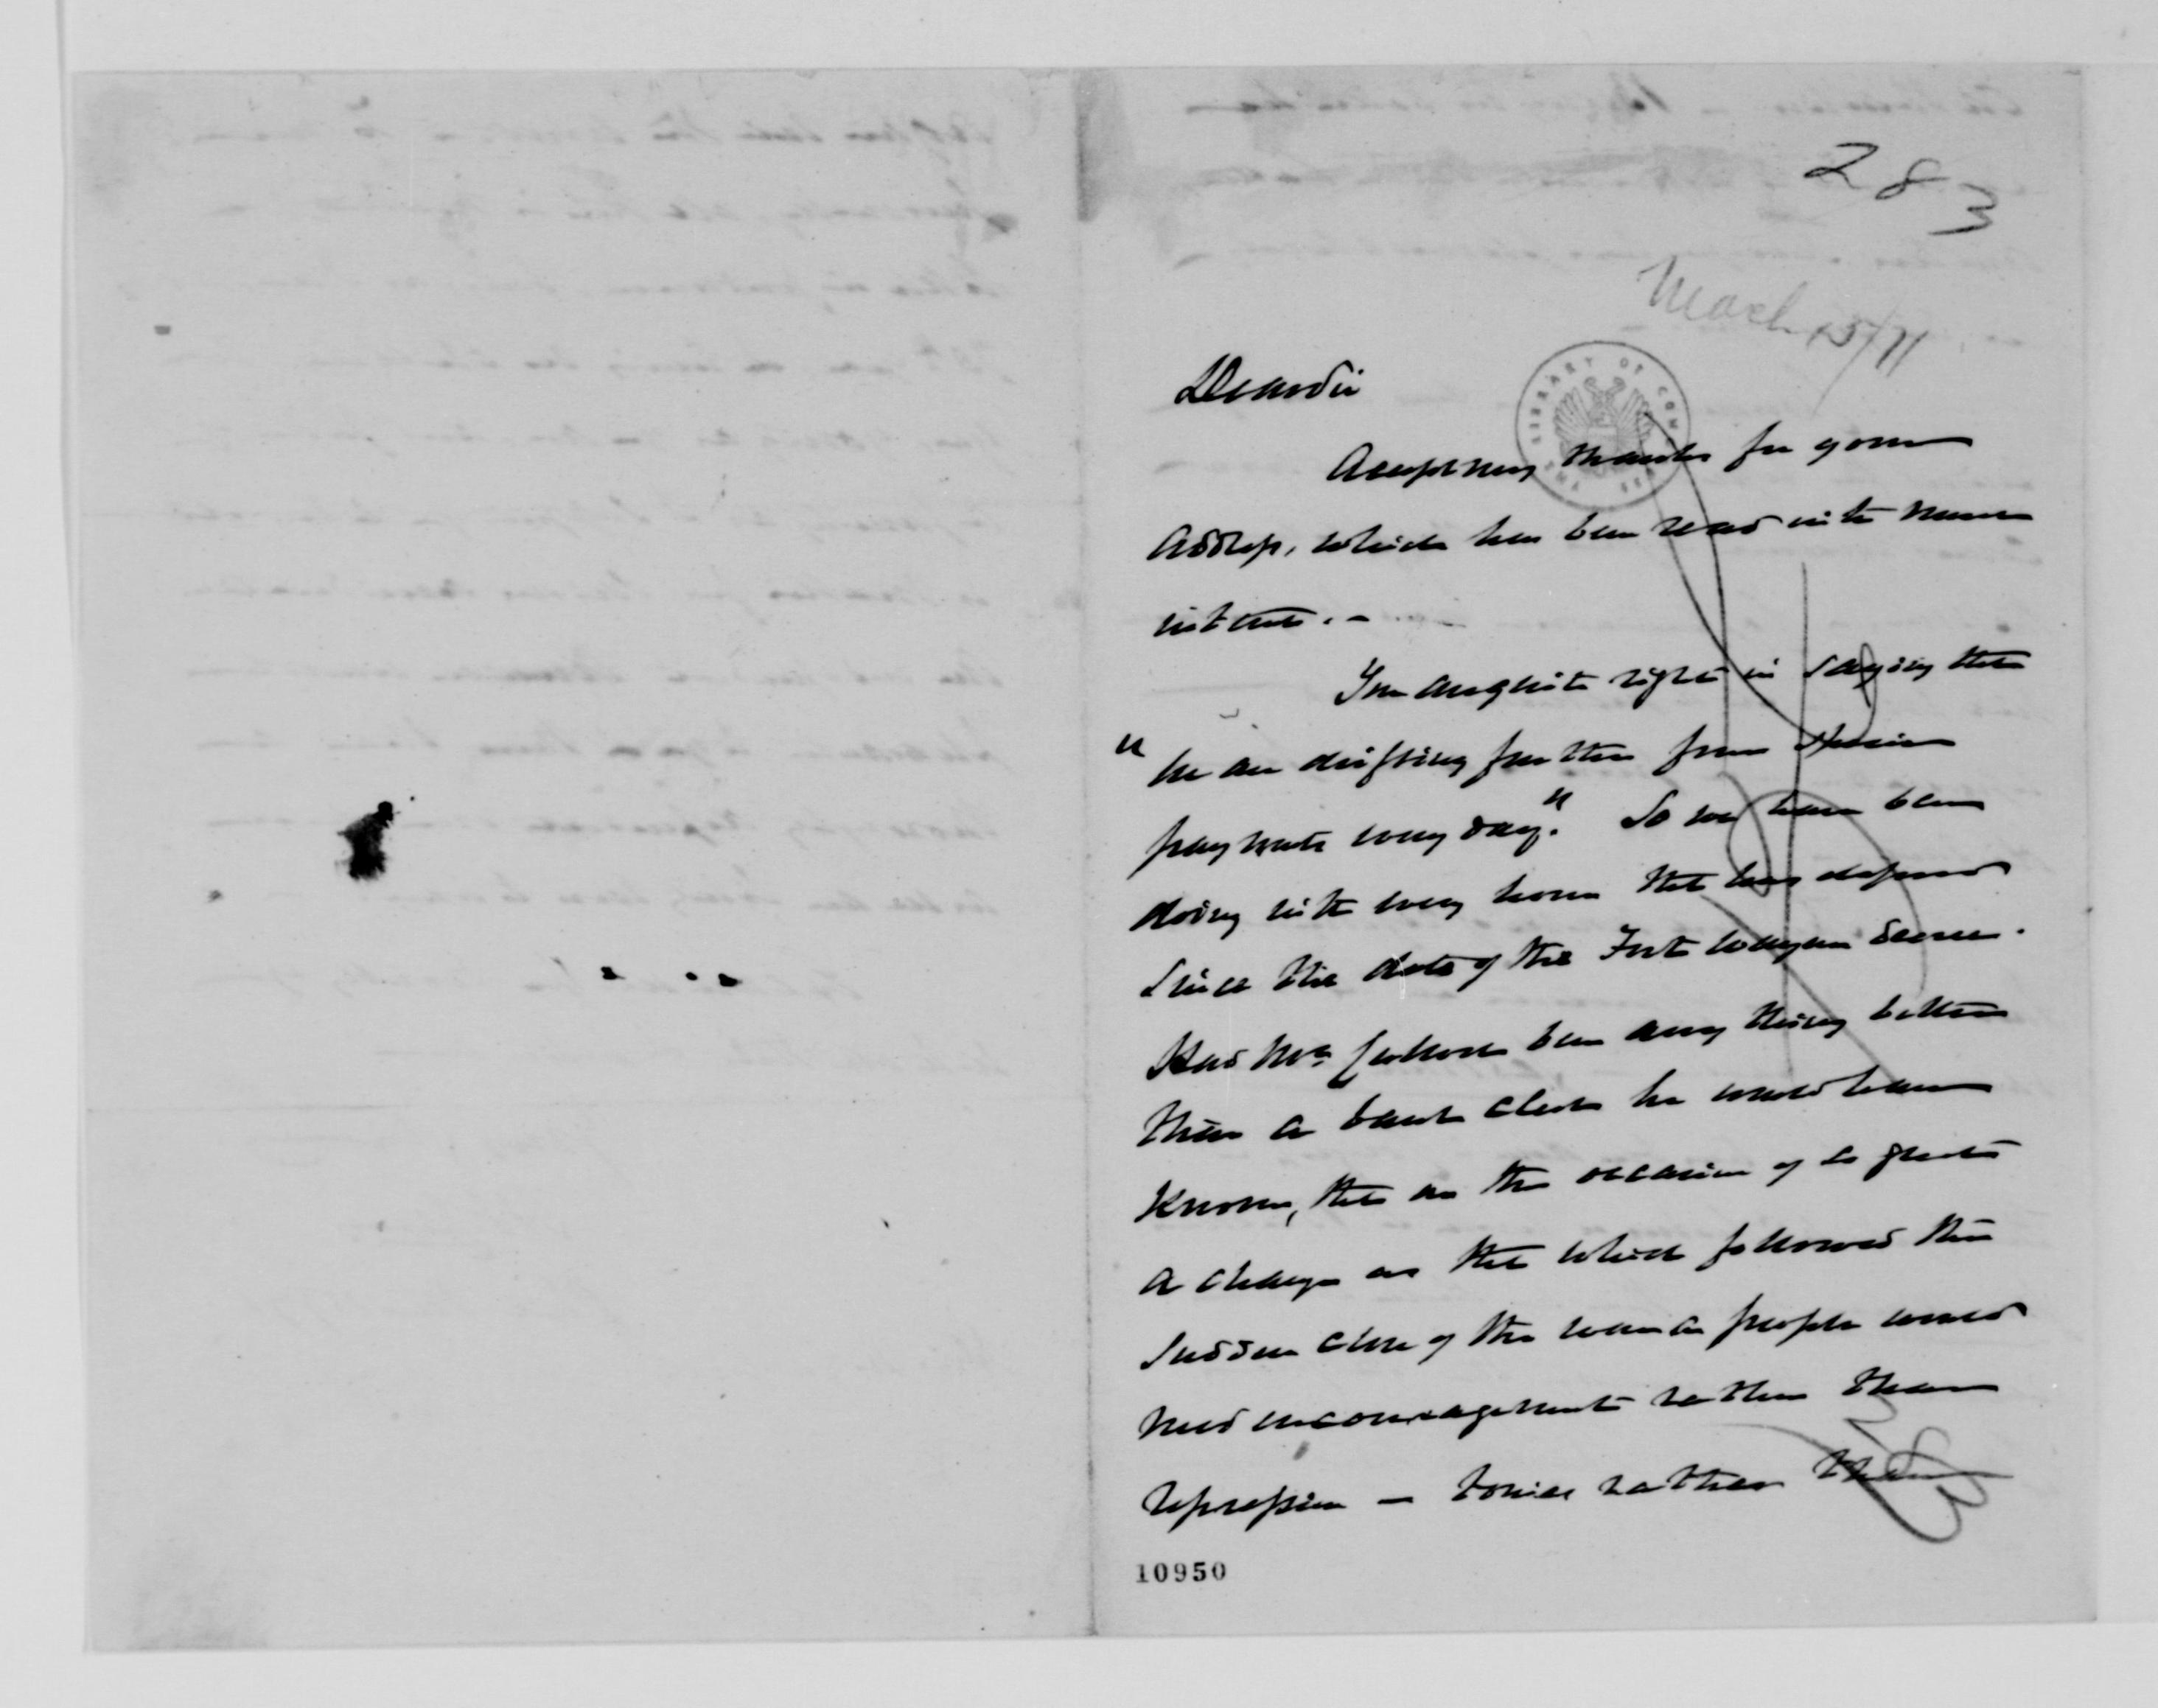 283
March 15/71
LIBRARY OF CONGRESS
Dear Sir
Accept my thanks for your
address, which has been read with much
interest. –
You are quite right in saying that
"we are drifting further from specie
payments every day." So we have been
doing with every hour that has elapsed
since the date of the Fort Wayne decree.
Had Mr. McCulloch been any thing better
than a bank clerk he would have
known, that on the occasion of so great
a change as that which followed the
sudden close of the war a people would
need encouragement rather than
repression — tonics rather than
283
10950